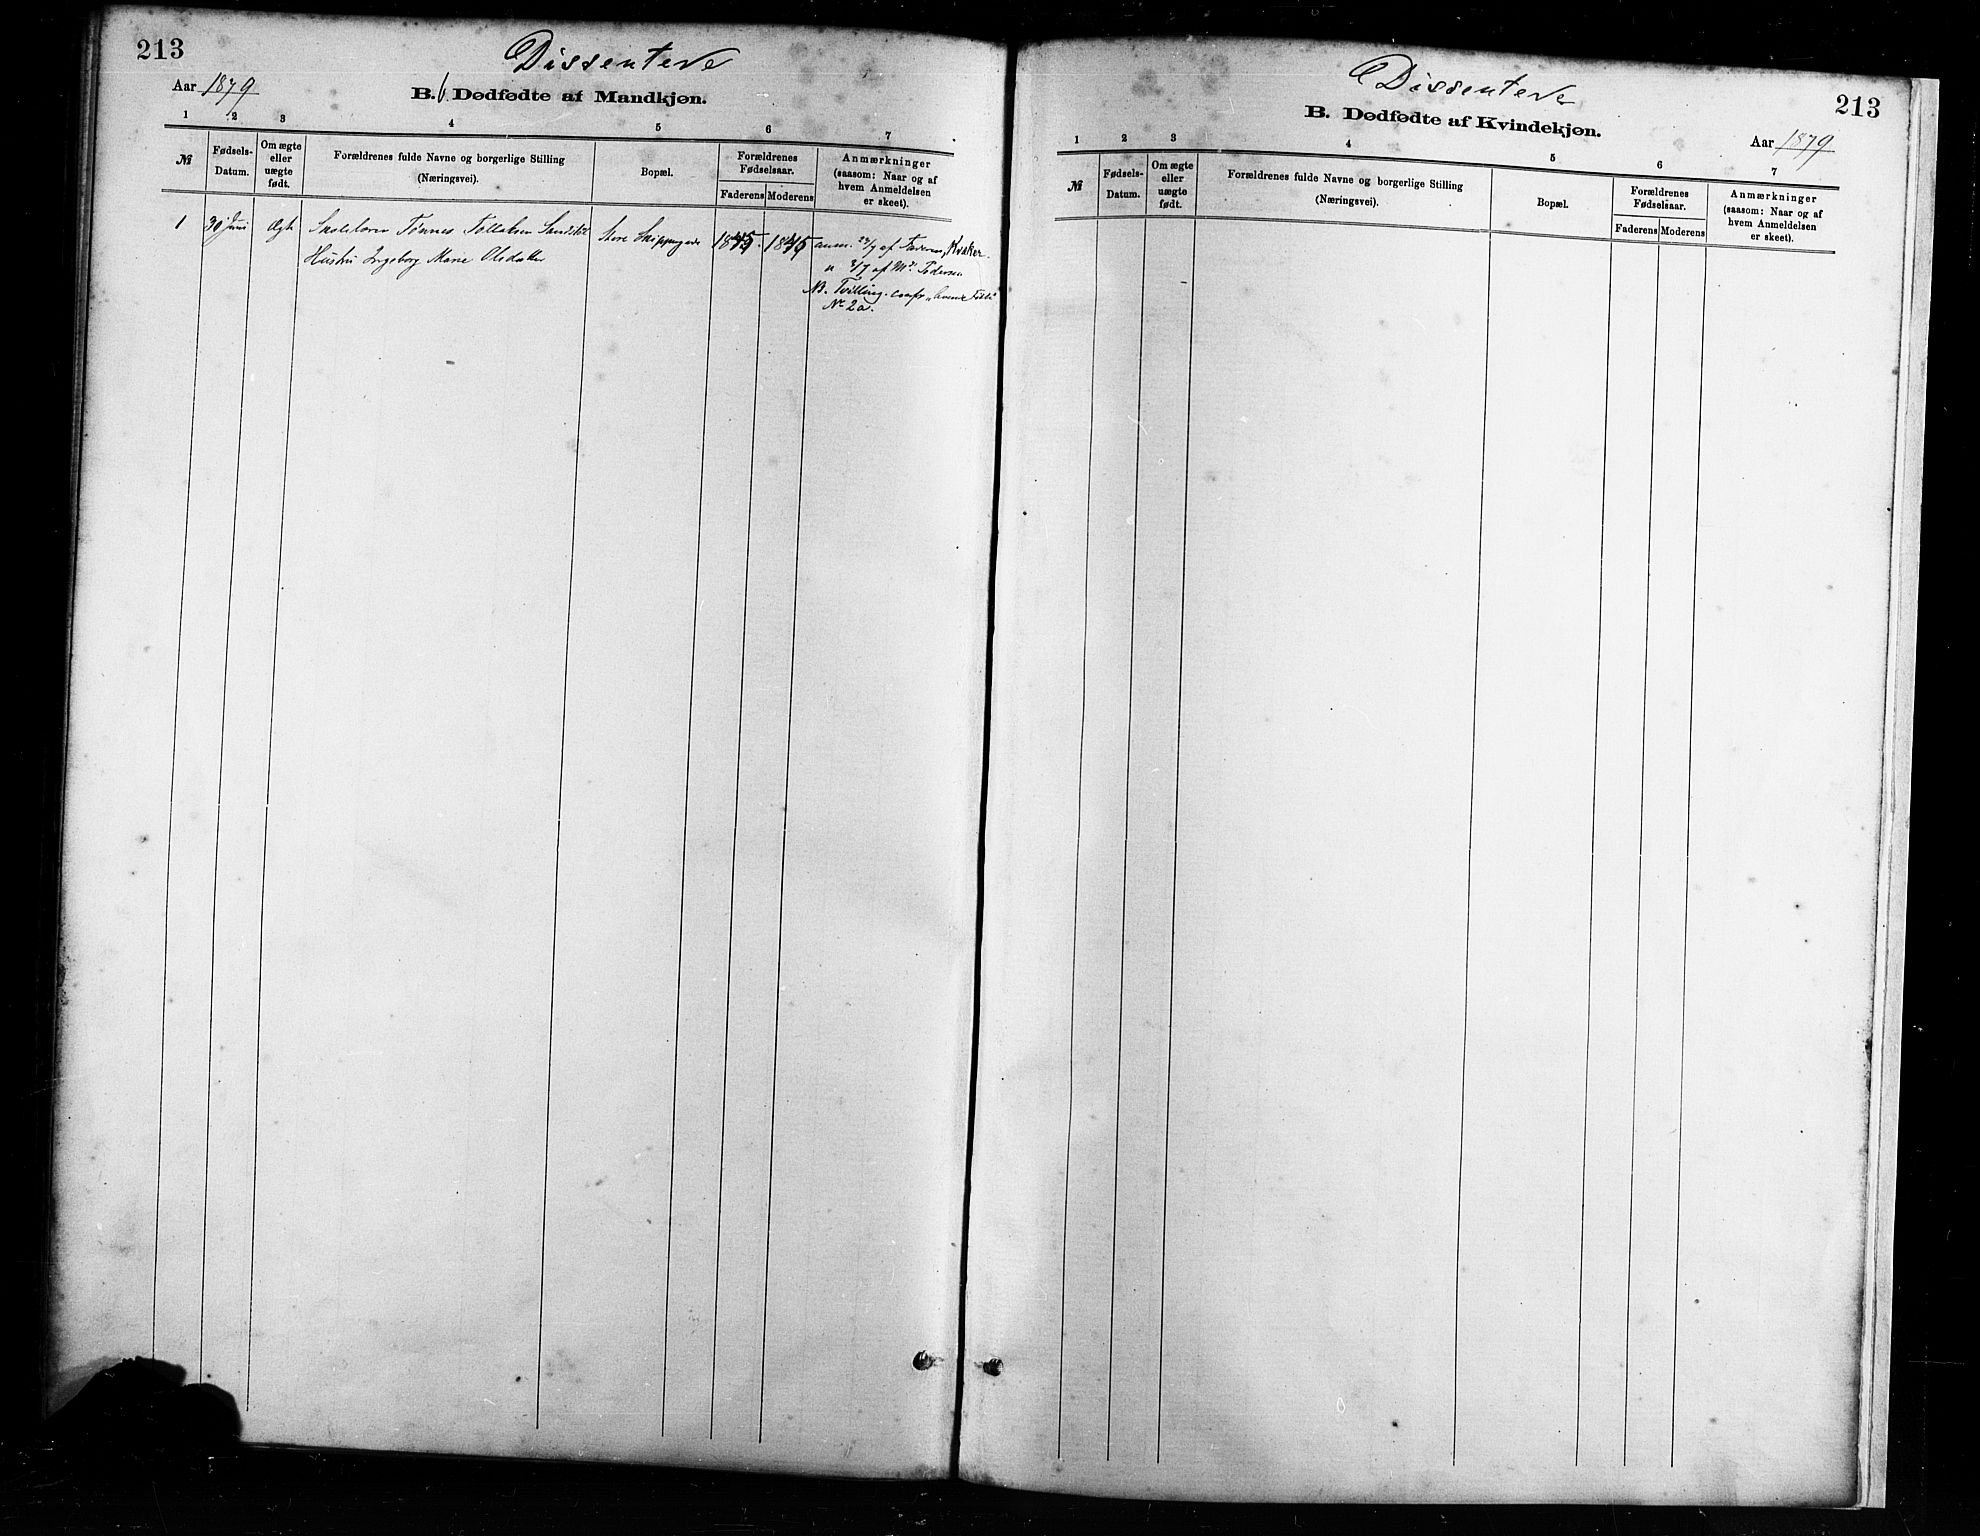 213
Dissentere
Aar 1879
B. Dødfødte af Mandkjøn.
1 2 3 4 5 6 7
№
Fødsels-
Datum.
Om ægte
eller
uægte
født.
Forældrenes fulde Navne og borgerlige Stilling
(Næringsvei).
Bopæl.
Forældrenes
Fødselsaar.
Faderens Moderens
Anmærkninger
(saasom: Naar og af
hvem Anmeldelsen
er skeet).
1 30 Juni Ægte Skolelærer Tønnes Tollaksen store Skippergade 1845 1845 anm. af Faderen, Kvæker
Hustru Ingeborg Marie Olsdatter
" 3/7 af Pedersen
NB. Tvilling. confr.
No 2a.
Dissentere
213
B. Dødfødte af Kvindekjøn.
Aar 1879
1 2 3 4 5 6 7
№
Fødsels-
Datum.
Om ægte
eller
uægte
født.
Forældrenes fulde Navne og borgerlige Stilling
(Næringsvei).
Bopæl.
Forældrenes
Fødselsaar.
Faderens Moderens
Anmærkninger
(saasom: Naar og af
hvem Anmeldelsen
er skeet).